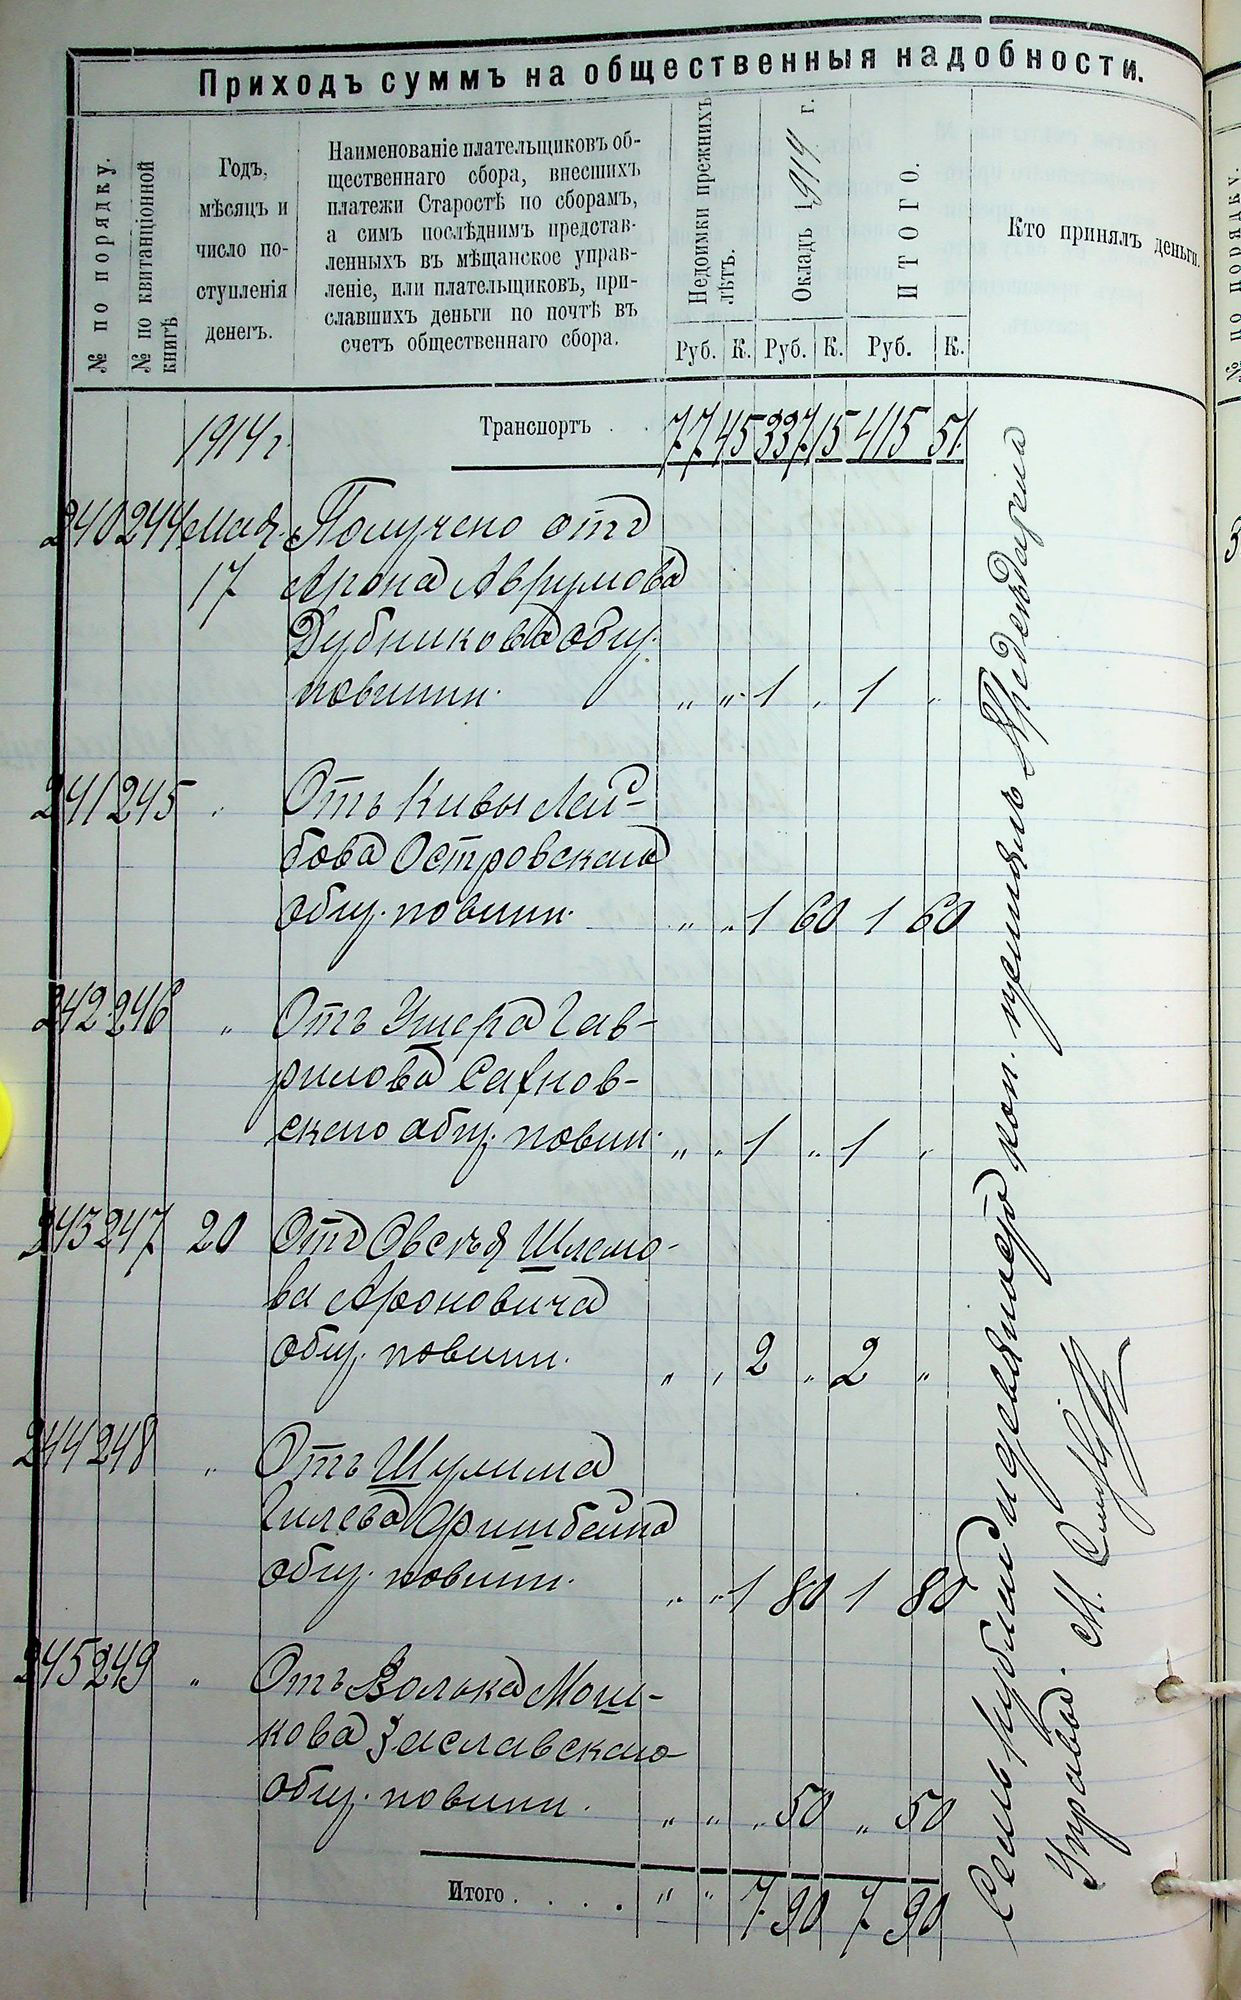 Приходъ суммъ на общественныя надобности.
№ по порядку.
№ по квитанціонной
книгѣ
Годъ,
мѣсяцъ и
число по-
ступленія
денегъ.
Наименованіе плательщиковъ об-
щественнаго сбора, внесшихъ
платежи Старостѣ по сборамъ,
а симъ послѣднимъ представ-
ленныхъ въ мѣщанское управ-
леніе, или плательщиковъ, при-
славшихъ деньги по почтѣ въ
счетъ общественнаго сбора.
Недоимки прежнихъ
лѣтъ.
Окладъ 1914 г.
ИТОГО.
Кто принялъ деньги.
Руб. К. Руб. К. Руб. К.
1914 г. Транспортъ . . 77 45 337 15 415 51
240 244 Мая Получено отъ
17 Арона Аврумова
Дубникова общ.
повинн. „ „ 1 „ 1 „
241 245 „ Отъ Кивы Лей-
бова Островскаго
общ. повинн. „ „ 1 60 1 60
242 246 „ Отъ Ушера Гав-
рилова Сахнов-
скаго общ. повин. „ „ 1 „ 1 „
243 247 20 Отъ Овсѣя Шлемо-
ва Ароновича
общ. повинн. „ „ 2 „ 2 „
244 248 „ Отъ Шулима
Гилева Фришбейна
общ. повинн. „ „ 1 80 1 80
245 249 „ Отъ Волька Мош-
кова Заславскаго
общ. повинн. „ „ „ 50 „ 50
Итого . . . . „ „ 7 90 7 90
Семь рублей и девяносто коп. принялъ Предсѣдатель
Управы. М.
№ по порядку.